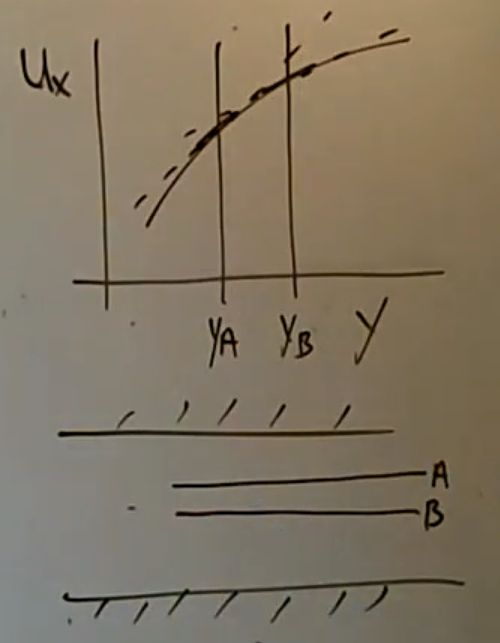 Ux
yA yB y
A
B